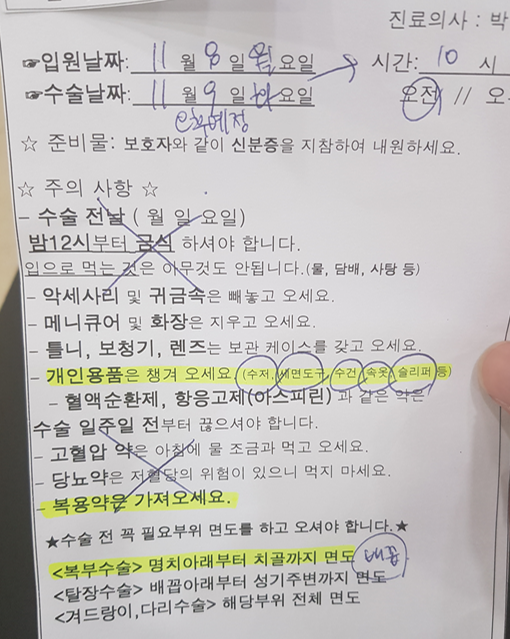 진료의사 : 박
☞입원날짜: 11 월 8 일 월 요일 → 시간: 10 시
☞수술날짜: 11 월 9 일 화 요일 오전 // 오
예정
☆ 준비물: 보호자와 같이 신분증을 지참하여 내원하세요.
☆ 주의 사항 ☆
- 수술 전날 ( 월 일 요일)
밤12시부터 금식 하셔야 합니다.
입으로 먹는 것은 아무것도 안됩니다.(물, 담배, 사탕 등)
- 악세사리 및 귀금속은 빼놓고 오세요.
- 메니큐어 및 화장은 지우고 오세요.
- 틀니, 보청기, 렌즈는 보관 케이스를 갖고 오세요.
- 개인용품은 챙겨 오세요.(수저, 세면도구, 수건, 속옷, 슬리퍼 등)
- 혈액순환제, 항응고제(아스피린) 과 같은 약은
수술 일주일 전부터 끊으셔야 합니다.
- 고혈압 약은 아침에 물 조금과 먹고 오세요.
- 당뇨약은 저혈당의 위험이 있으니 먹지 마세요.
- 복용약은 가져오세요.
★수술 전 꼭 필요부위 면도를 하고 오셔야 합니다.★
<복부수술> 명치아래부터 치골까지 면도 배꼽
<탈장수술> 배꼽아래부터 성기주변까지 면도
<겨드랑이,다리수술> 해당부위 전체 면도